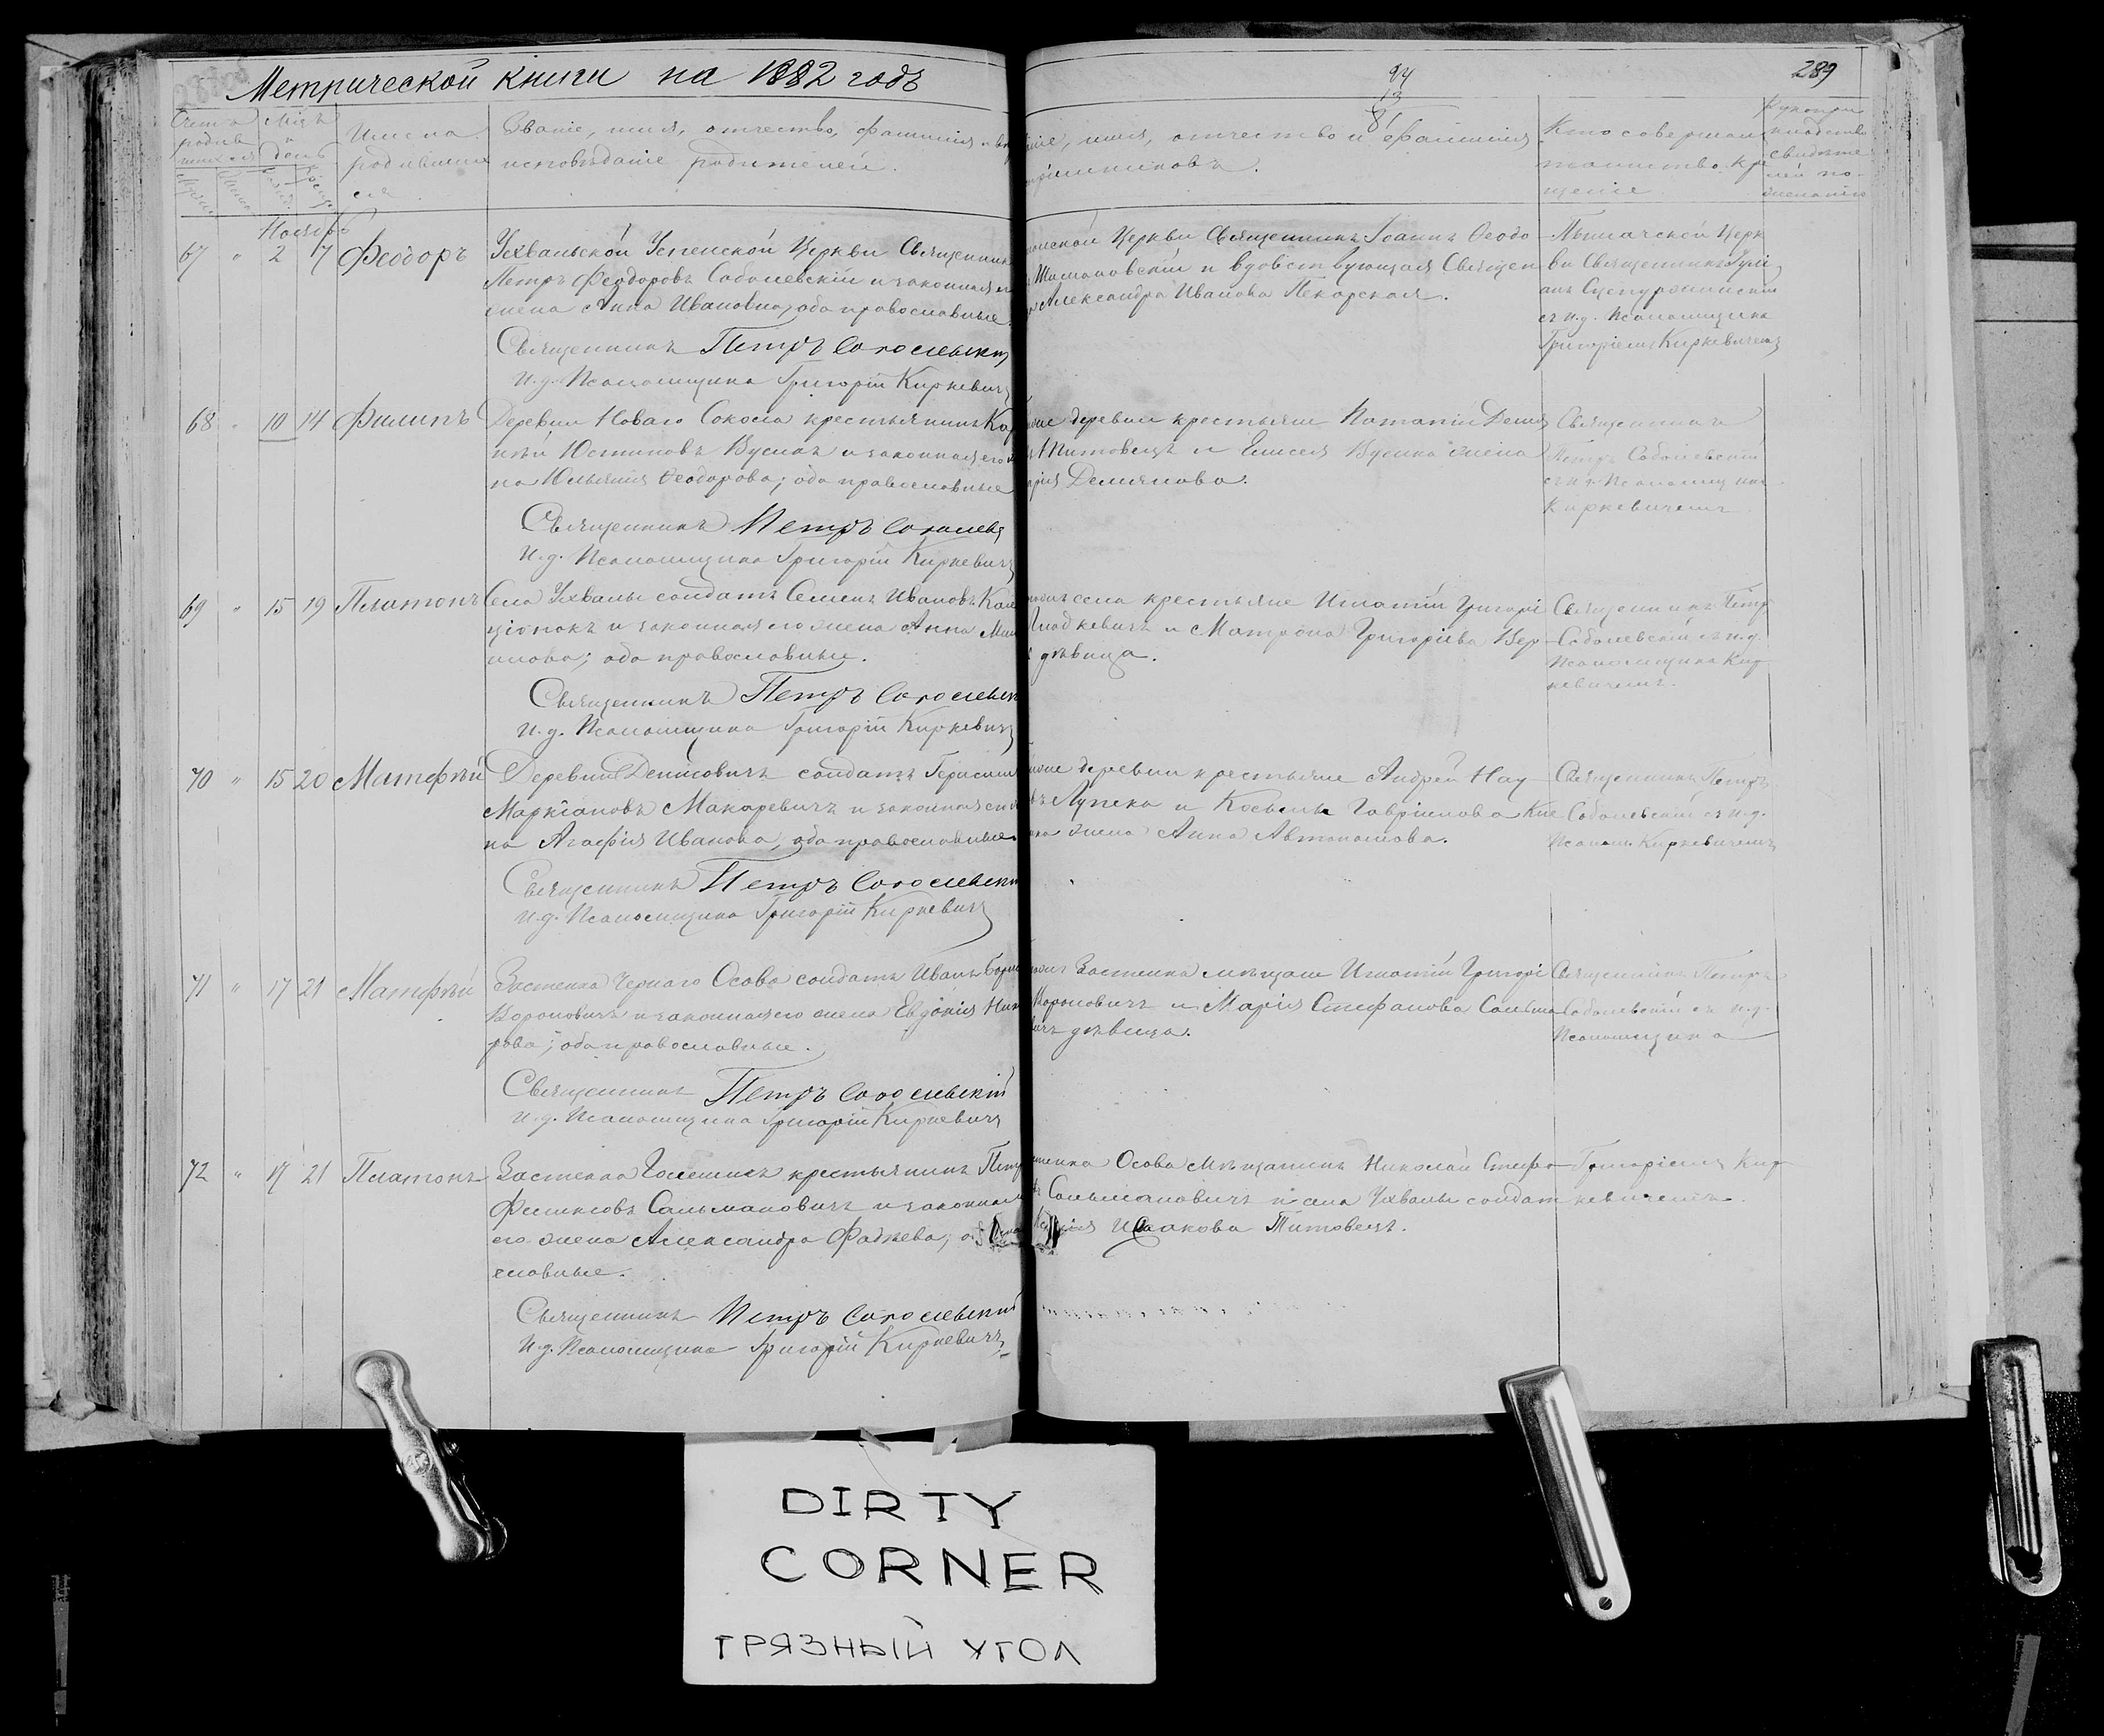 Метрической книги на 1882 годъ
94
13
81
289
Счетъ родив шихся
Мѣся
и
день
Имена
родивших
ся
Званіе, имя, отчество, фамилія и вѣ
исповѣданіе родителей.
ніе, имя, отчество и фамилія
пріемниковъ.
Кто совершал
таинство кре
щенія
Рукопри
кладство
свидѣте
лей по
желанію
Ноябрь
67 " 2 7 Феодоръ
Ухвальской Успенской Церкви Священник
Петръ Феодоровъ Соболевскій и законная ег
жена Анна Ивановна, оба православные.
Священникъ Петръ Соболевскій
И.д. Псаломщика Григорій Киркевичъ
Церкви Священникъ Іоаннъ Ѳеодо
и вдовствующая Священ
Александра Иванова Пекарская.
Церк
ви Священникъ Іулі
анъ
съ и.д. Псаломщика
Григоріемъ Киркевичемъ
68 " 10 14 Филипъ
Деревни Новаго Сокола крестьянинъ Кор
нѣй Юстиновъ Бусмак и законная его же
на Юльянія Ѳеодорова; оба православные
Священникъ Петръ Соболевс
И.д. Псаломщика Григорій Киркевичъ
деревни крестьяне Потапій Деми
Титовецъ и Елисея жена
рія Демьянова.
Священникъ
Петръ Соболевскій
съ и.д. Псаломщика
Киркевичемъ
69 " 15 19 Платонъ
Села Ухвалы солдатъ Семенъ Ивановъ Кан
ціонокъ и законная его жена Анна Мин
инова; оба православные.
Священникъ Петръ Соболевск
И.д. Псаломщика Григорій Киркевичъ
села крестьяне Игнатій Григорі
Гладкевичъ и Матрона Григоріева Вер
дѣвица.
Священникъ Петр
Соболевскій съ и.д.
Псаломщика Кир
кевичемъ.
70 " 15 20 Матфѣй
Деревни Денисовичъ солдатъ Герасим
Маркіановъ Макаревичъ и законная его же
на Агафія Иванова, оба православные.
Священникъ Петръ Соболевскі
И.д. Псаломщика Григорій Киркевичъ
деревни крестьяне Андрей Нау
въ Лупека и Косьмы Гавріилова Кис
жена Анна Автономова.
Священникъ Петръ
Соболевскій съ и.д.
Псалом. Киркевичемъ
71 " 17 21 Матфѣй
Застенка Чернаго Осова солдатъ Иванъ Бори
Вороновичъ и законная его жена Евдокія Ник
рова; оба православные.
Священникъ Петръ Соболевскій
И.д. Псаломщика Григорій Киркевичъ
Застенка мѣщане Игнатій Григорі
Вороновичъ и Марія Стефанова Сальма
вичъ дѣвица.
Священникъ Петръ
Соболевскій съ и.д.
Псаломщика
72 " 17 21 Платонъ
Застенка крестьянинъ Петр
Феликсовъ Сальмановичъ и законная
его жена Александра Фадѣева; о
славные.
Священникъ Петръ Соболевскій
И.д. Псаломщика Григорій Киркевичъ
тенка Осова Мѣщанинъ Николай Стефа
въ Сальмановичъ и села Ухвалы солдат
Исакова Титовецъ.
Григоріемъ Кир
кевичемъ.
DIRTY
CORNER
ГРЯЗНЫЙ УГОЛ